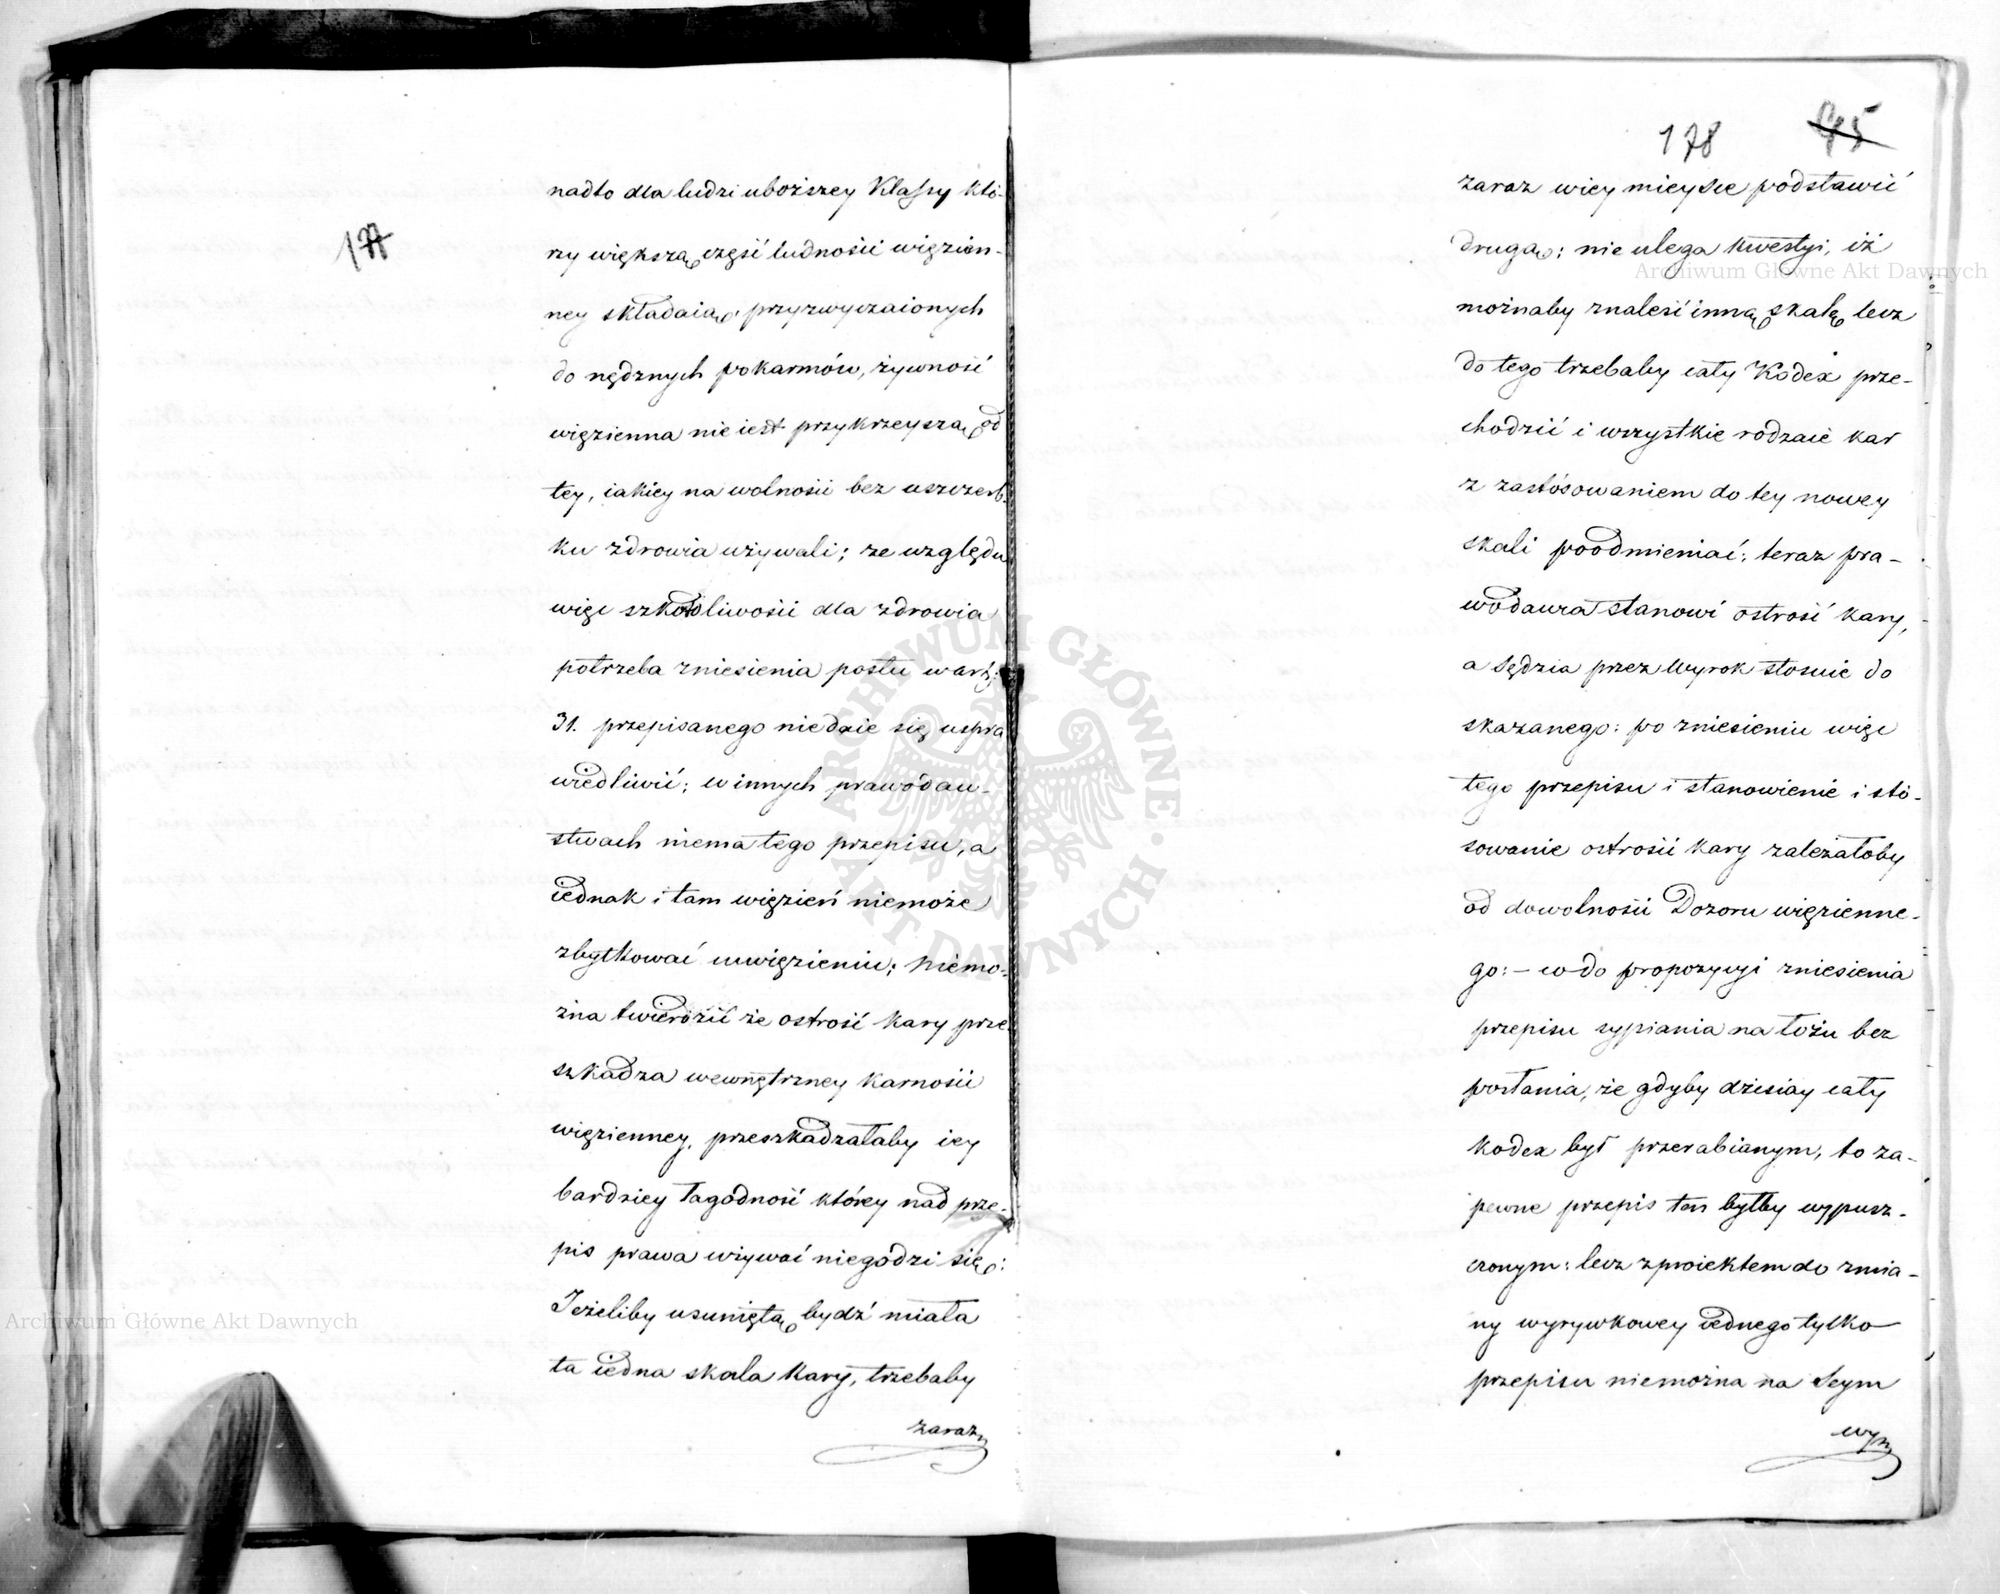 177
nadto dla ludzi uboższey Klassy któ-
rzy większą część ludności więzien-
ney składaią, przyzwyczaionych
do nędznych pokarmów, żywność
więzienna nie iest przykrzeyszą od
tey, iakiey na wolności bez uszczerb-
ku zdrowia używali; ze względu
więc szkodliwości dla zdrowia
potrzeba zniesienia postu w art:
31. przepisanego nie daie się uspra
wiedliwić; w innych prawodaw-
stwach niema tego przepisu, a
iednak i tam więzień niemoże
zbytkować w więzieniu; niemo-
żna twierdzić że ostrość kary prze
szkadza wewnętrzney karności
więzienney, przeszkadzałaby iey
bardziey łagodność którey nad prze-
pis prawa używać niegodzi się:
Jeżeliby usuniętą bydź miała
ta iedna skala kary, trzebaby
zaraz
178
zaraz w iey mieysce podstawić
drugą; nie ulega kwestyi, iż
możnaby znaleść inną skalę lecz
do tego trzebaby cały Kodex prze-
chodzić i wszystkie rodzaie kar
z zastósowaniem do tey nowey
skali poodmieniać; teraz pra-
wodawca stanowi ostrość kary,
a sędzia przez wyrok stosuie do
skazanego: po zniesieniu więc
tego przepisu i stanowienie i stó-
sowanie ostrości kary zależałoby
od dowolności Dozoru więzienne-
go: – co do propozycyi zniesienia
przepisu sypiania na łożu bez
posłania, że gdyby dzisiay cały
kodex był przerabianym, to za-
pewne przepis ten byłby wypusz-
czonym: lecz z proiektem do zmia-
ny wyrywkowey iednego tylko
przepisu niemożna na Seym
wy
Archiwum Główne Akt Dawnych
Archiwum Główne Akt Dawnych
ARCHIWUM GŁÓWNE AKT DAWNYCH